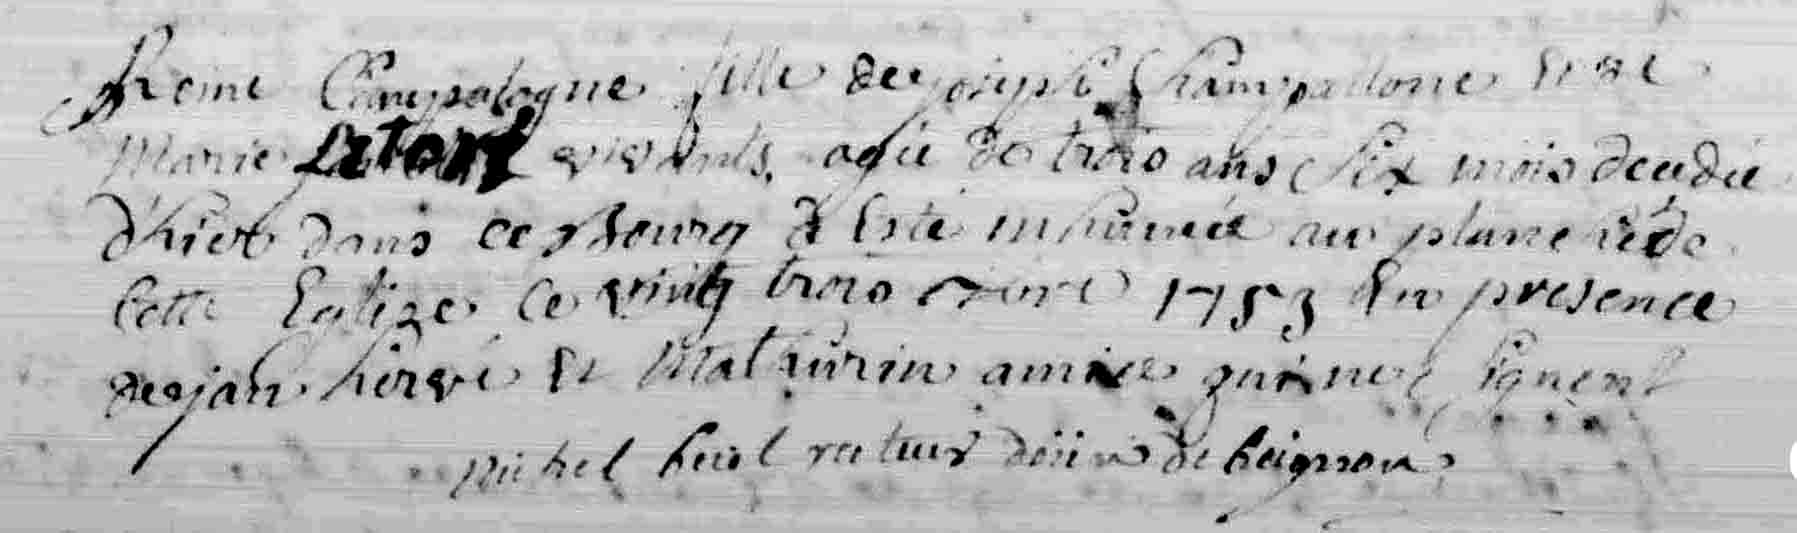 Reine Champalogne fille de joseph Champallone et de
Marie Letort vivants, agée de trois ans six mois decedée
d'hier dans ce Bourg a Esté inhumée au placître de
Cette Eglize ce vingt trois 1753 En presence
de jan hervé Et Mathurin amice qui ne signent
Michel recteur doien de beignon